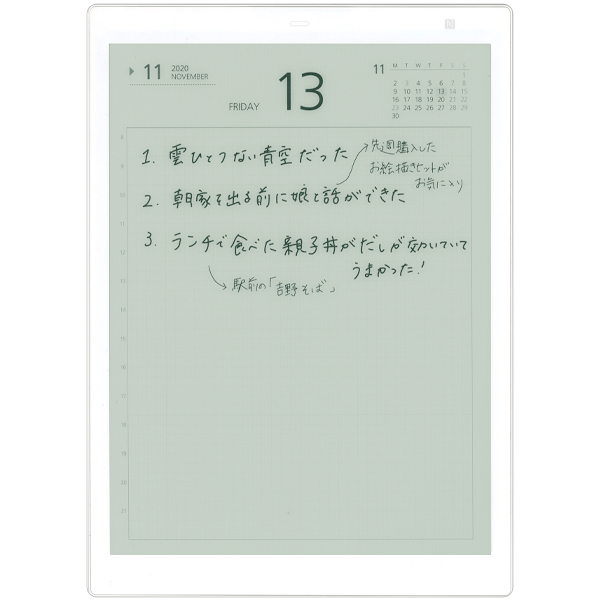 11 2020
NOVEMBER
FRIDAY 13
11 M T W T F S S
1
2 3 4 5 6 7 8
9 10 11 12 13 14 15
16 17 18 19 20 21 22
23 24 25 26 27 28 29
30
1. 雲ひとつない青空だった
先週購入した
お絵描きセットが
お気に入り
2. 朝家を出る前に娘と話ができた
3. ランチで食べた親子丼がだしが効いていて
うまかった!
駅前の「吉野そば」
8
9
10
11
12
13
14
15
16
17
18
19
20
21